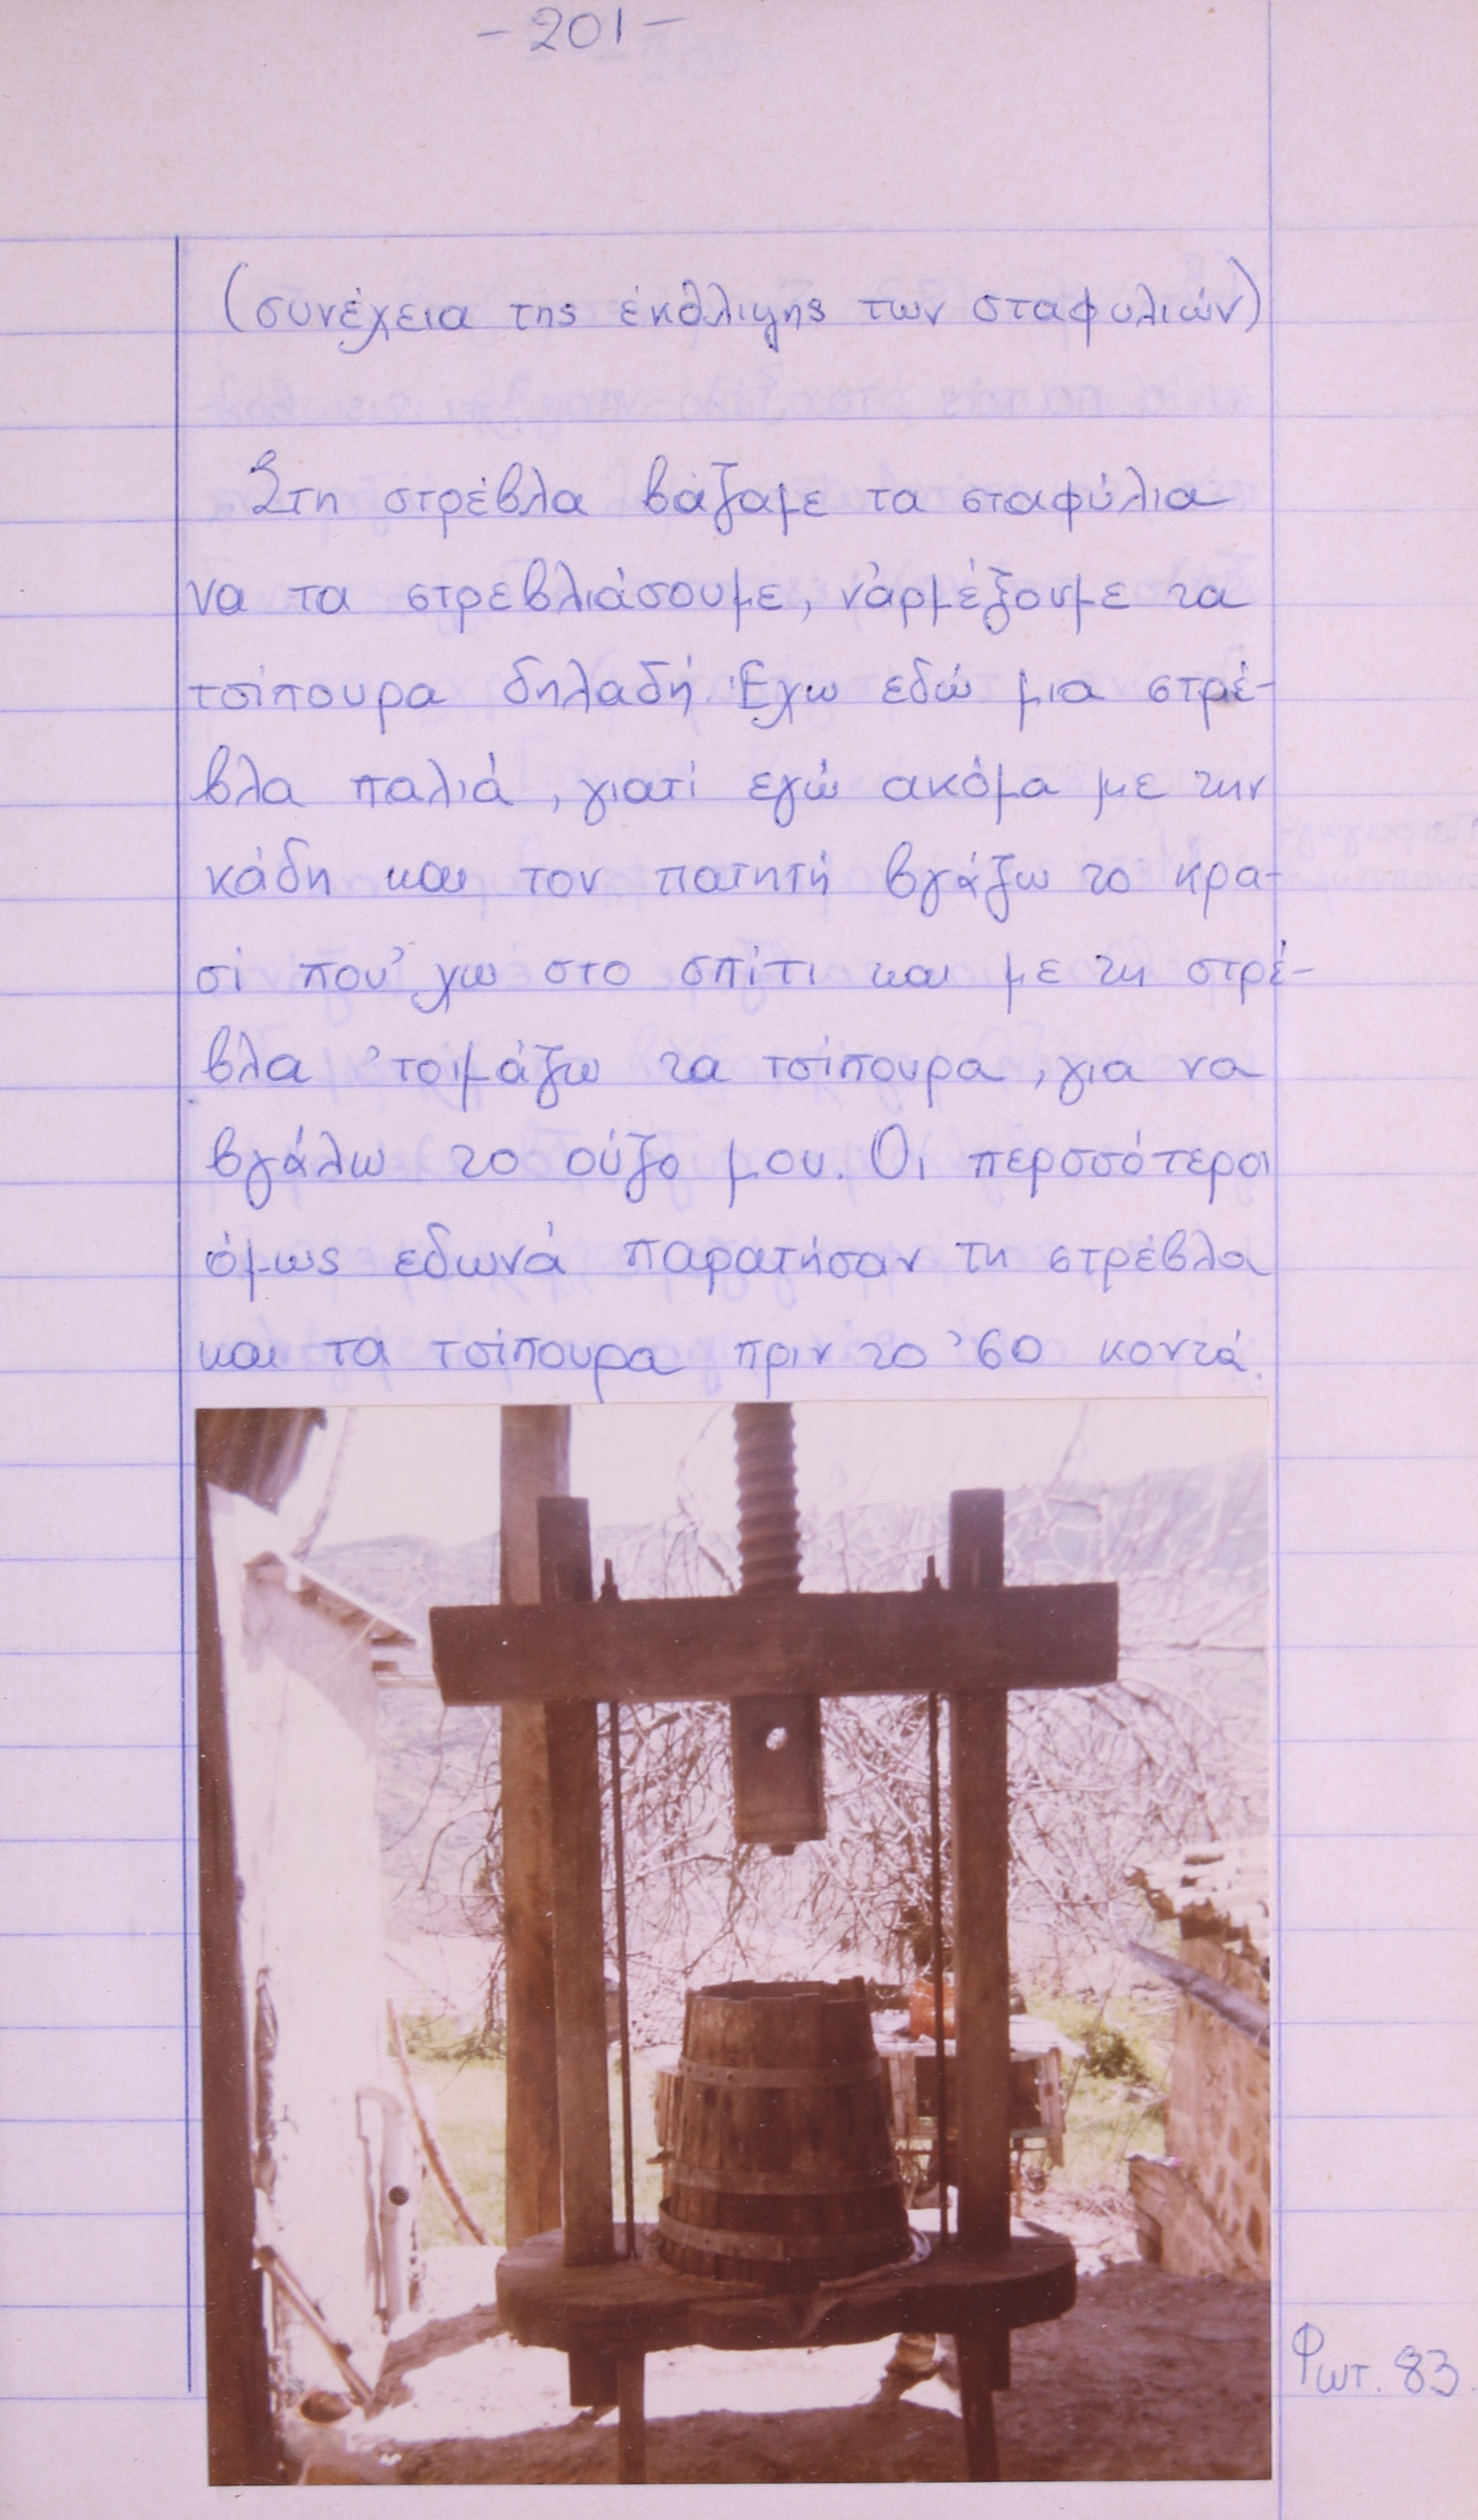 - 201 -
(συνέχεια της έκθλιψης των σταφυλιών)
Στη στρέβλα βάζαμε τα σταφύλια
να τα στρεβλιάσουμε, ν'αρμέξουμε τα
τσίπουρα δηλαδή. Έχω εδώ μια στρέ-
βλα παλιά, γιατί εγώ ακόμα με την
κάδη και τον πατητή βγάζω το κρα-
σί που' χω στο σπίτι και με τη στρέ-
βλα 'τοιμάζω τα τσίπουρα, για να
βγάλω το ούζο μου. Οι περσσότεροι
όμως εδωνά παρατήσαν τη στρέβλα
και τα τσίπουρα πριν το '60 κοντά.
Φωτ. 83.